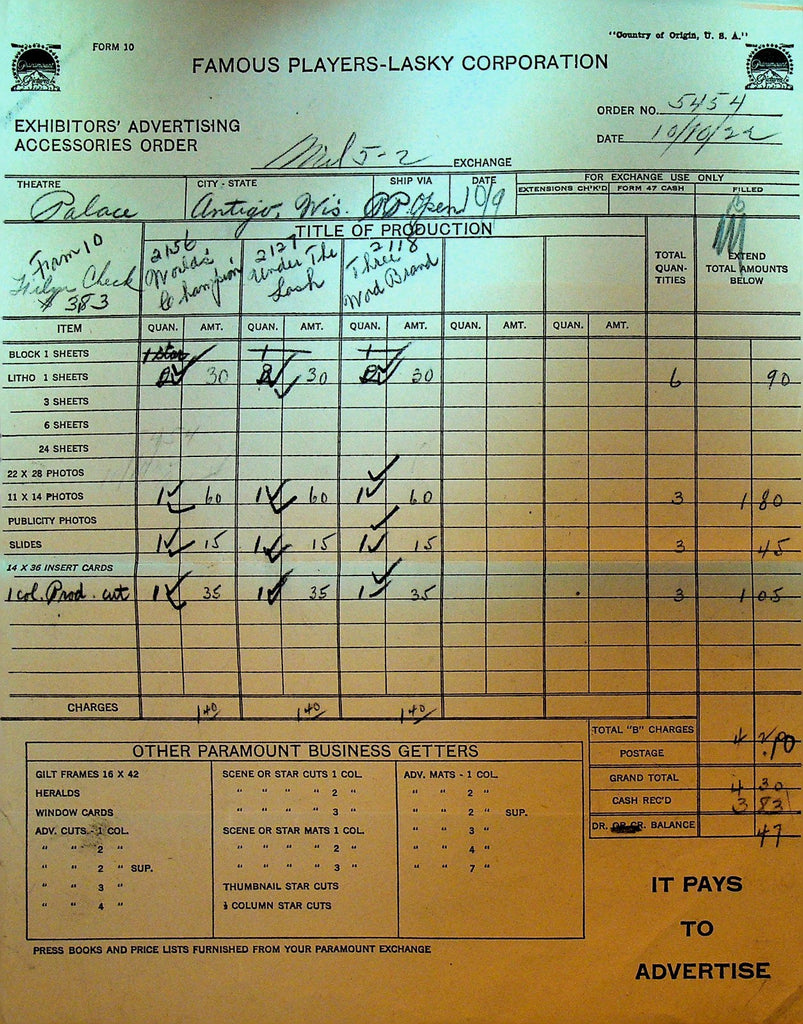 "Country of Origin, U. S. A."
FORM 10
FAMOUS PLAYERS-LASKY CORPORATION
Paramount Pictures
Paramount Pictures
ORDER NO. 5454
EXHIBITORS' ADVERTISING
ACCESSORIES ORDER
DATE 10/10/22
Mil 5-2 EXCHANGE
THEATRE CITY - STATE SHIP VIA DATE FOR EXCHANGE USE ONLY
EXTENSIONS CH'K'D FORM 47 CASH FILLED
Palace Antigo, Wis. P.P. Open 10/9
TITLE OF PRODUCTION
From 10
Check
# 383
2156
World's
Champion
2127
Under The
Lash
2118
Three
Word Brand
TOTAL QUAN- TITIES
EXTEND TOTAL AMOUNTS BELOW
ITEM QUAN. AMT. QUAN. AMT. QUAN. AMT. QUAN. AMT. QUAN. AMT.
BLOCK 1 SHEETS 1 Star 1 1
LITHO 1 SHEETS 2 30 2 30 2 30 6 90
3 SHEETS
6 SHEETS
24 SHEETS
22 X 28 PHOTOS
11 X 14 PHOTOS 1 60 1 60 1 60 3 1 80
PUBLICITY PHOTOS
SLIDES 1 15 1 15 1 15 3 45
14 X 36 INSERT CARDS
1 col. Prod. cut 1 35 1 35 1 35 3 1 05
CHARGES 1 40 1 40 1 40
TOTAL "B" CHARGES 4 20
POSTAGE .10
GRAND TOTAL 4 30
CASH REC'D 3 83
DR. OR CR. BALANCE 47
OTHER PARAMOUNT BUSINESS GETTERS
GILT FRAMES 16 X 42
HERALDS
WINDOW CARDS
ADV. CUTS - 1 COL.
" " 2 "
" " 2 " SUP.
" " 3 "
" " 4 "
SCENE OR STAR CUTS 1 COL.
" " " " 2 "
" " " " 3 "
SCENE OR STAR MATS 1 COL.
" " " " 2 "
" " " " 3 "
THUMBNAIL STAR CUTS
½ COLUMN STAR CUTS
ADV. MATS - 1 COL.
" " 2 "
" " 2 " SUP.
" " 3 "
" " 4 "
" " 7 "
IT PAYS
TO
ADVERTISE
PRESS BOOKS AND PRICE LISTS FURNISHED FROM YOUR PARAMOUNT EXCHANGE